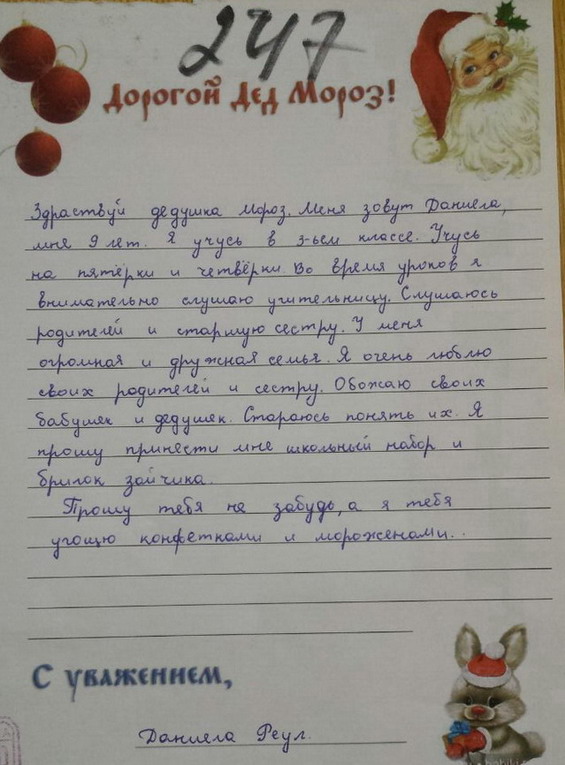 247
Дорогой Дед Мороз!
Здраствуй дедушка Мороз. Меня зовут Даниела,
мне 9 лет. Я учусь в 3-ьем классе. Учусь
на пятёрки и четвёрки. Во время уроков я
внимательно слушаю учительницу. Слушаюсь
родителей и старшую сестру. У меня
огромная и дружная семья. Я очень люблю
своих родителей и сестру. Обожаю своих
бабушек и дедушек. Стараюсь понять их. Я
прошу принести мне школьный набор и
брилок зайчика.
Прошу тебя не забудь, а я тебя
угощю конфетками и морожеными..
С уважением,
Даниела Реул.